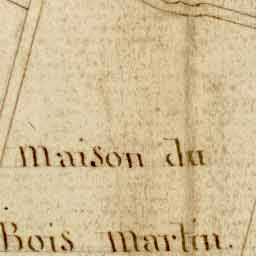 Maison du
Bois Martin.